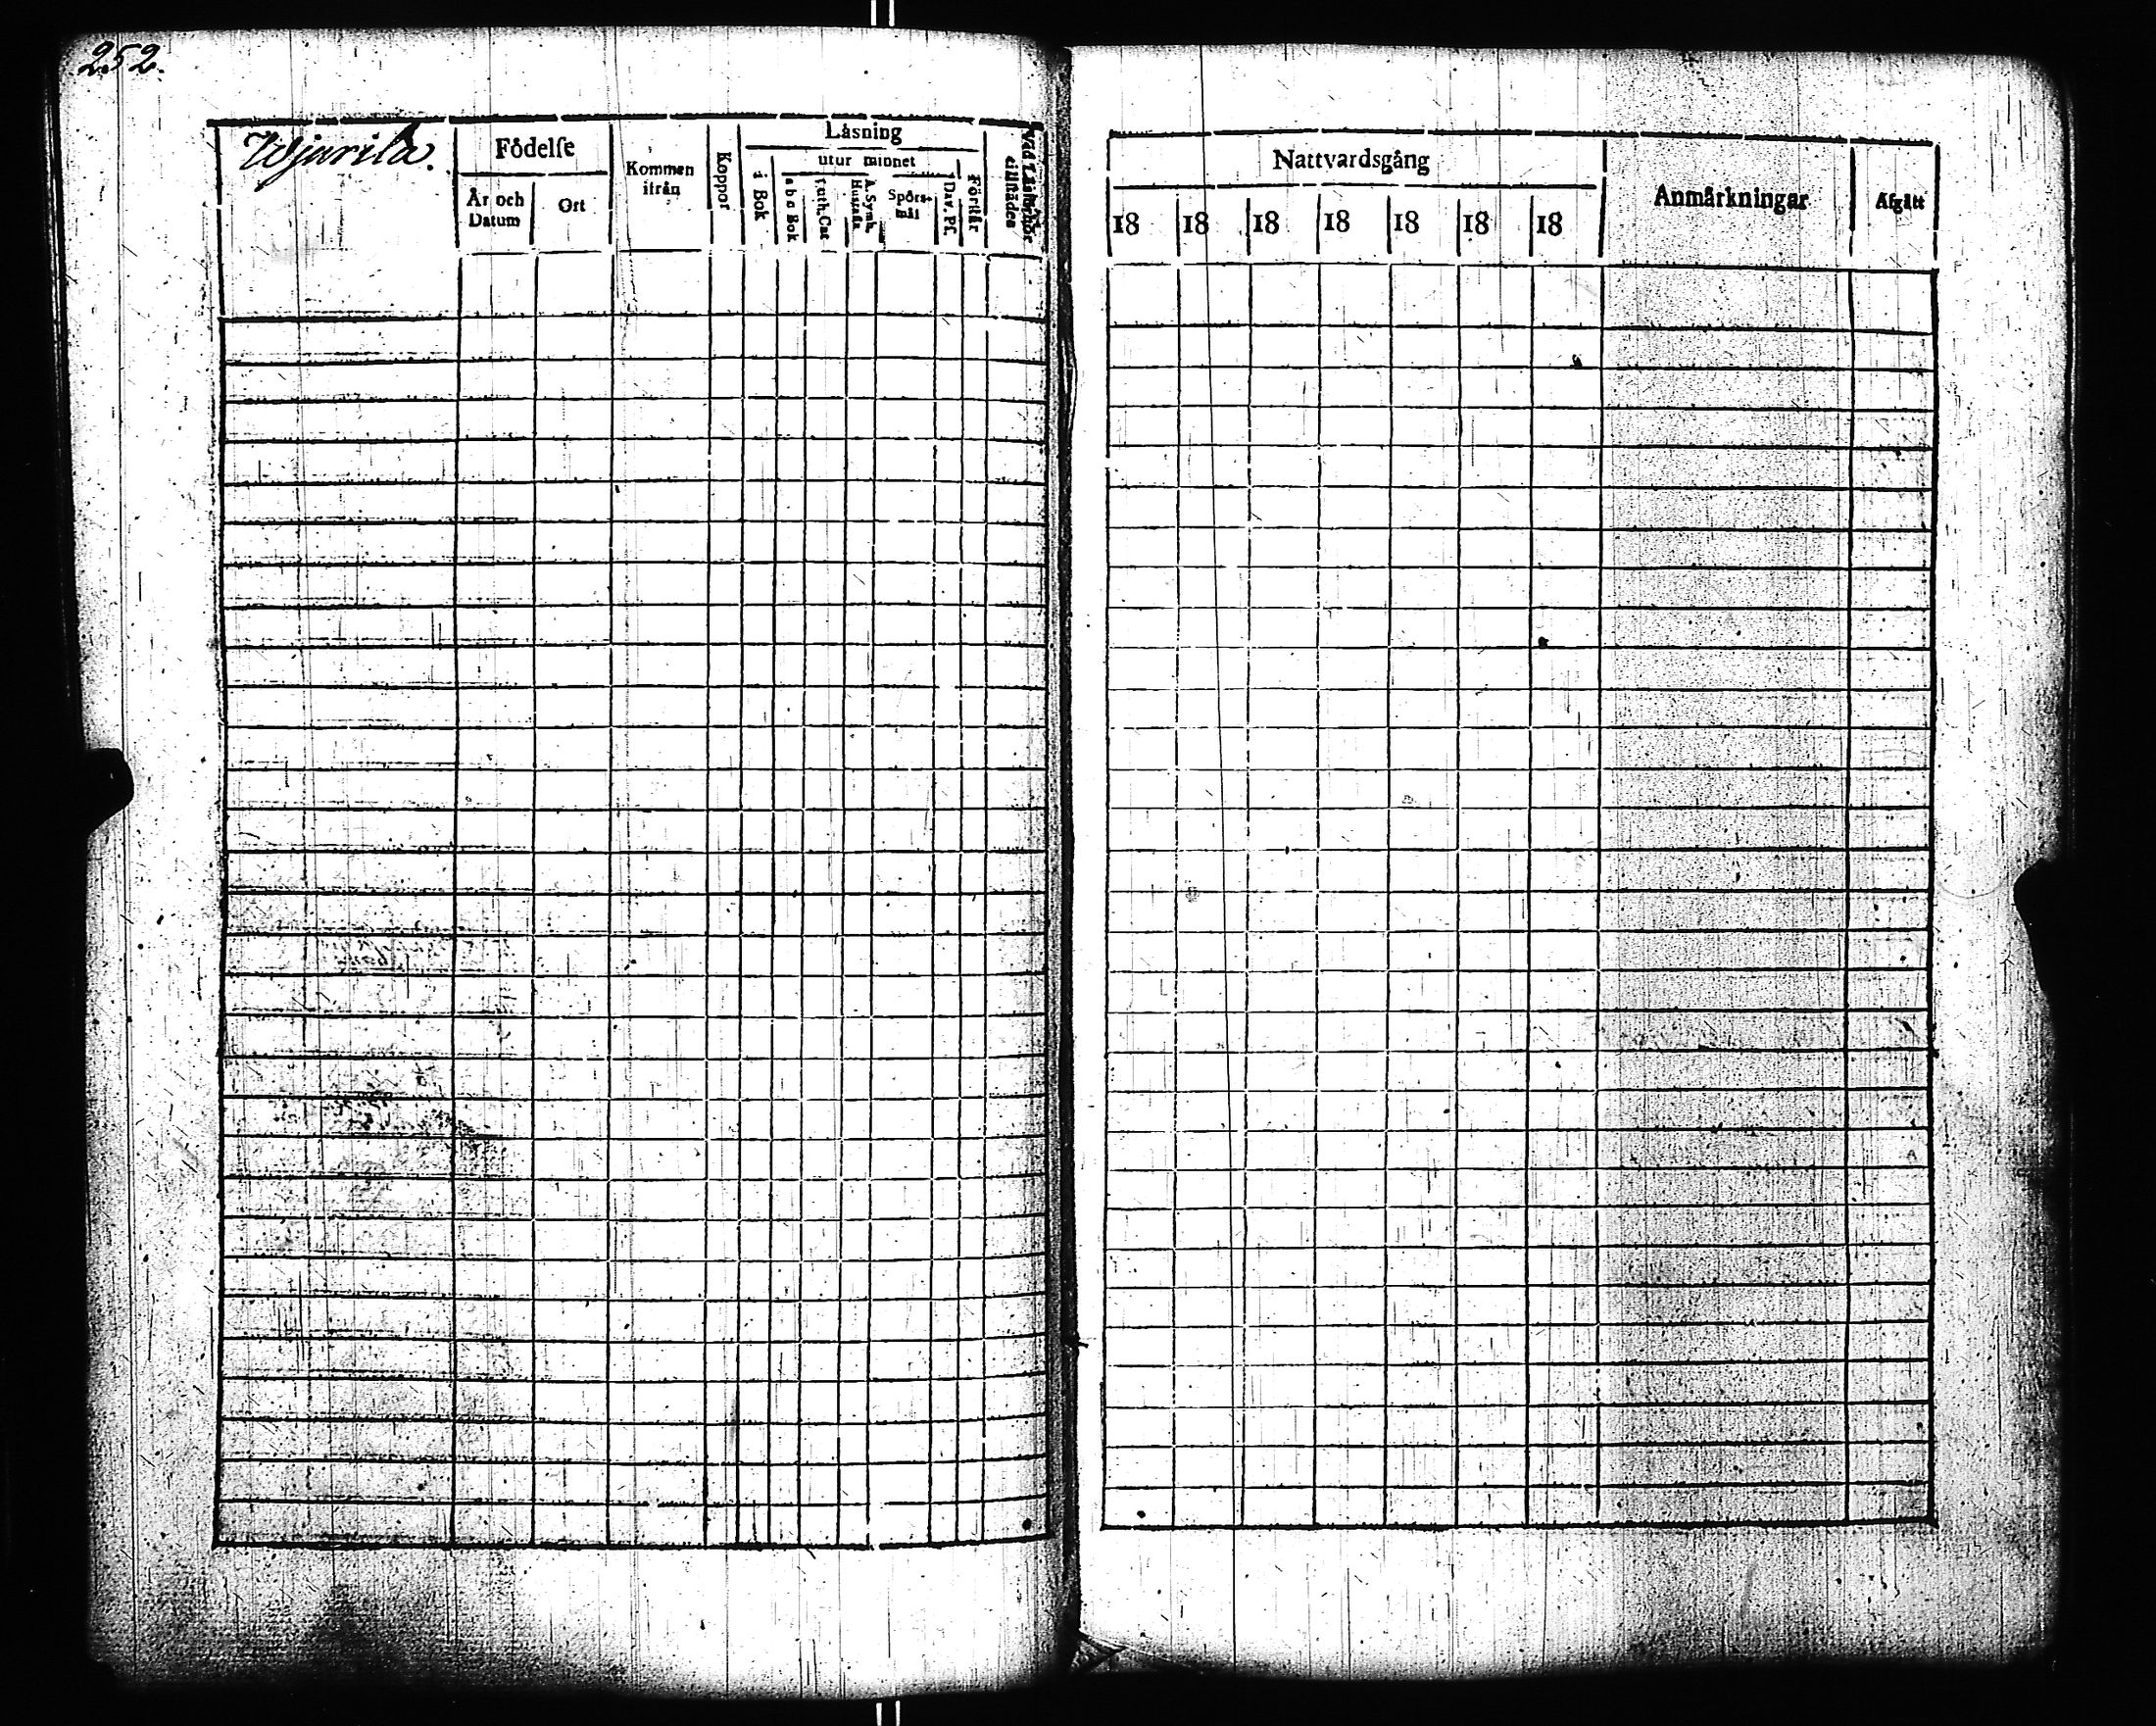 252.
Wjurila.
Födelse
År och Datum
Ort
Kommen ifrån
Koppor
Läsning
i Bok
utur minnet
a b c Bok
Luth. Cat
A. Symb. Hustafla
Spörsmål
Dav. Ps.
Förstår
Vid Läsförhör tillstädes
Nattvardsgång
18 18 18 18 18 18 18
Anmärkningar
Afgått